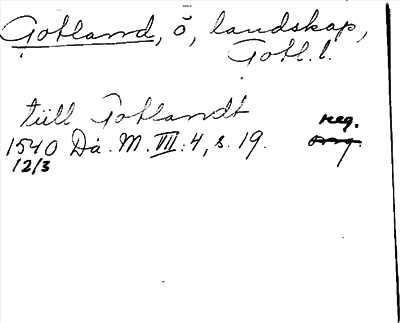 Gotland, ö, landskap,
Gotl. l.
till Gotlandt
reg.
1540 Da. M. VII:4, s. 19. org.
12/3